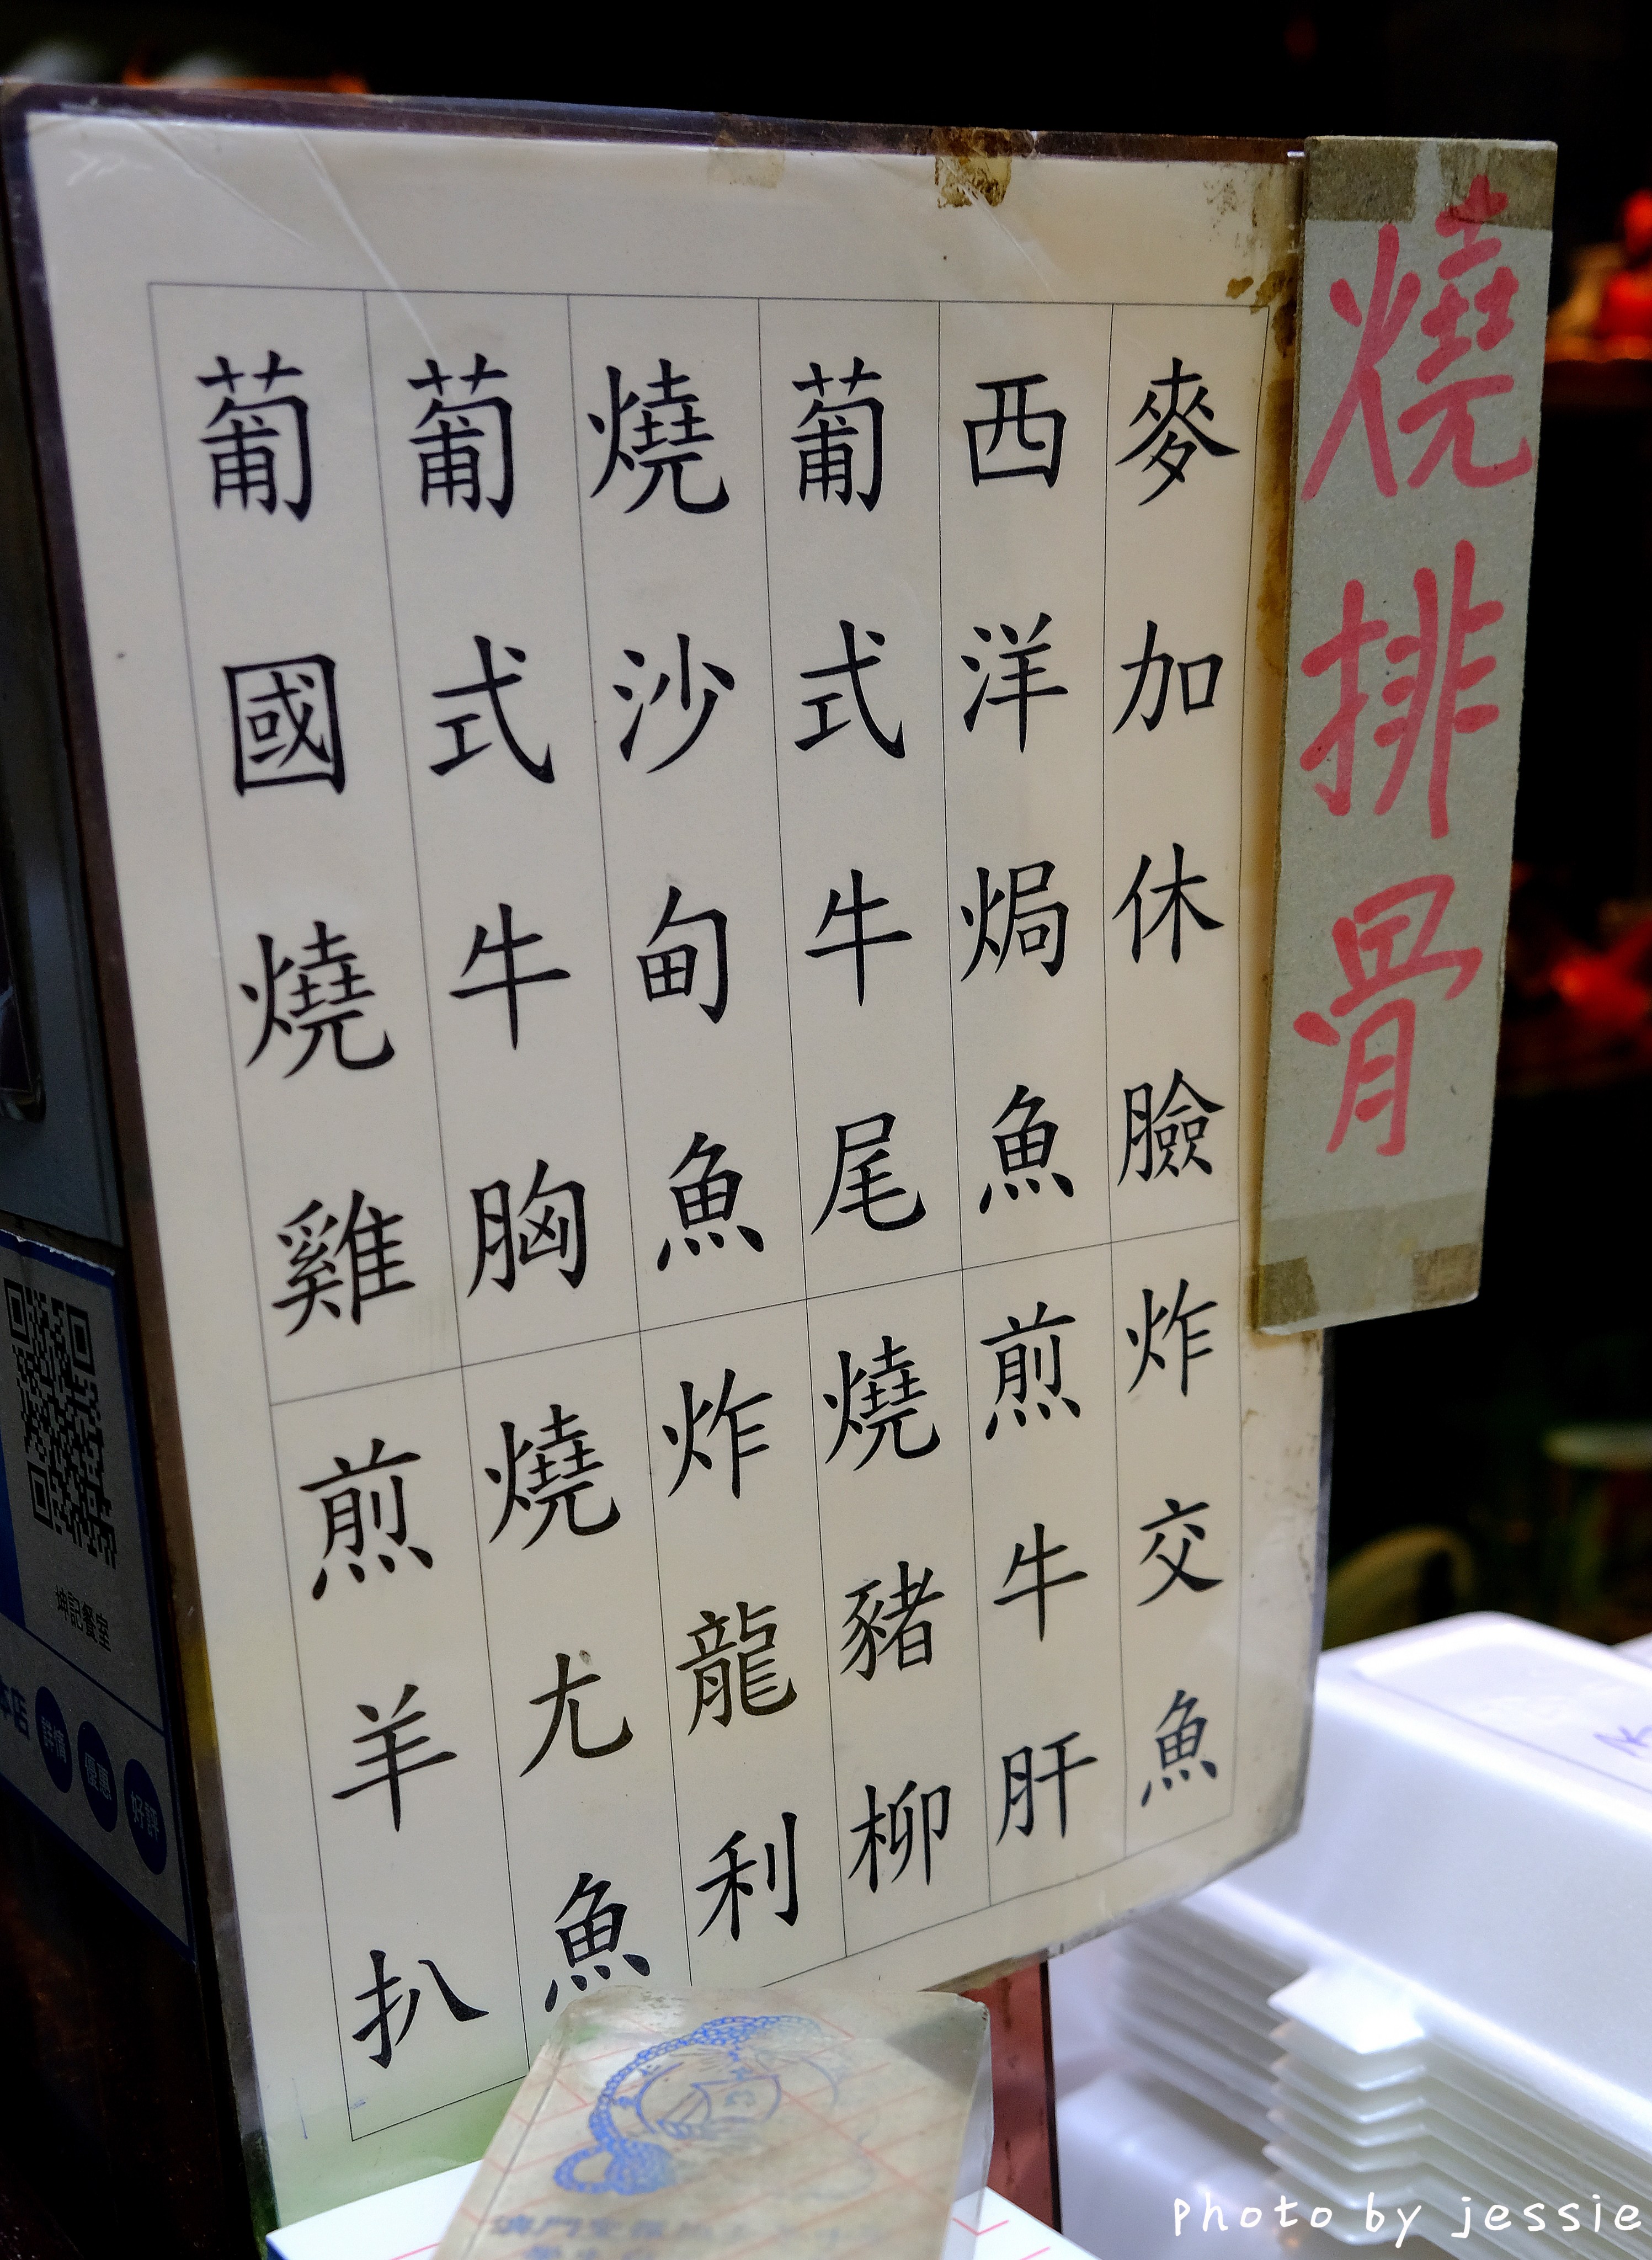 燒排骨
麥加休臉
西洋焗魚
葡式牛尾
燒沙甸魚
葡式牛胸
葡國燒雞
炸交魚
煎牛肝
燒豬柳
炸龍利
燒尤魚
煎羊扒
坤記餐室
本店
詳情
優惠
好評
Photo by jessie